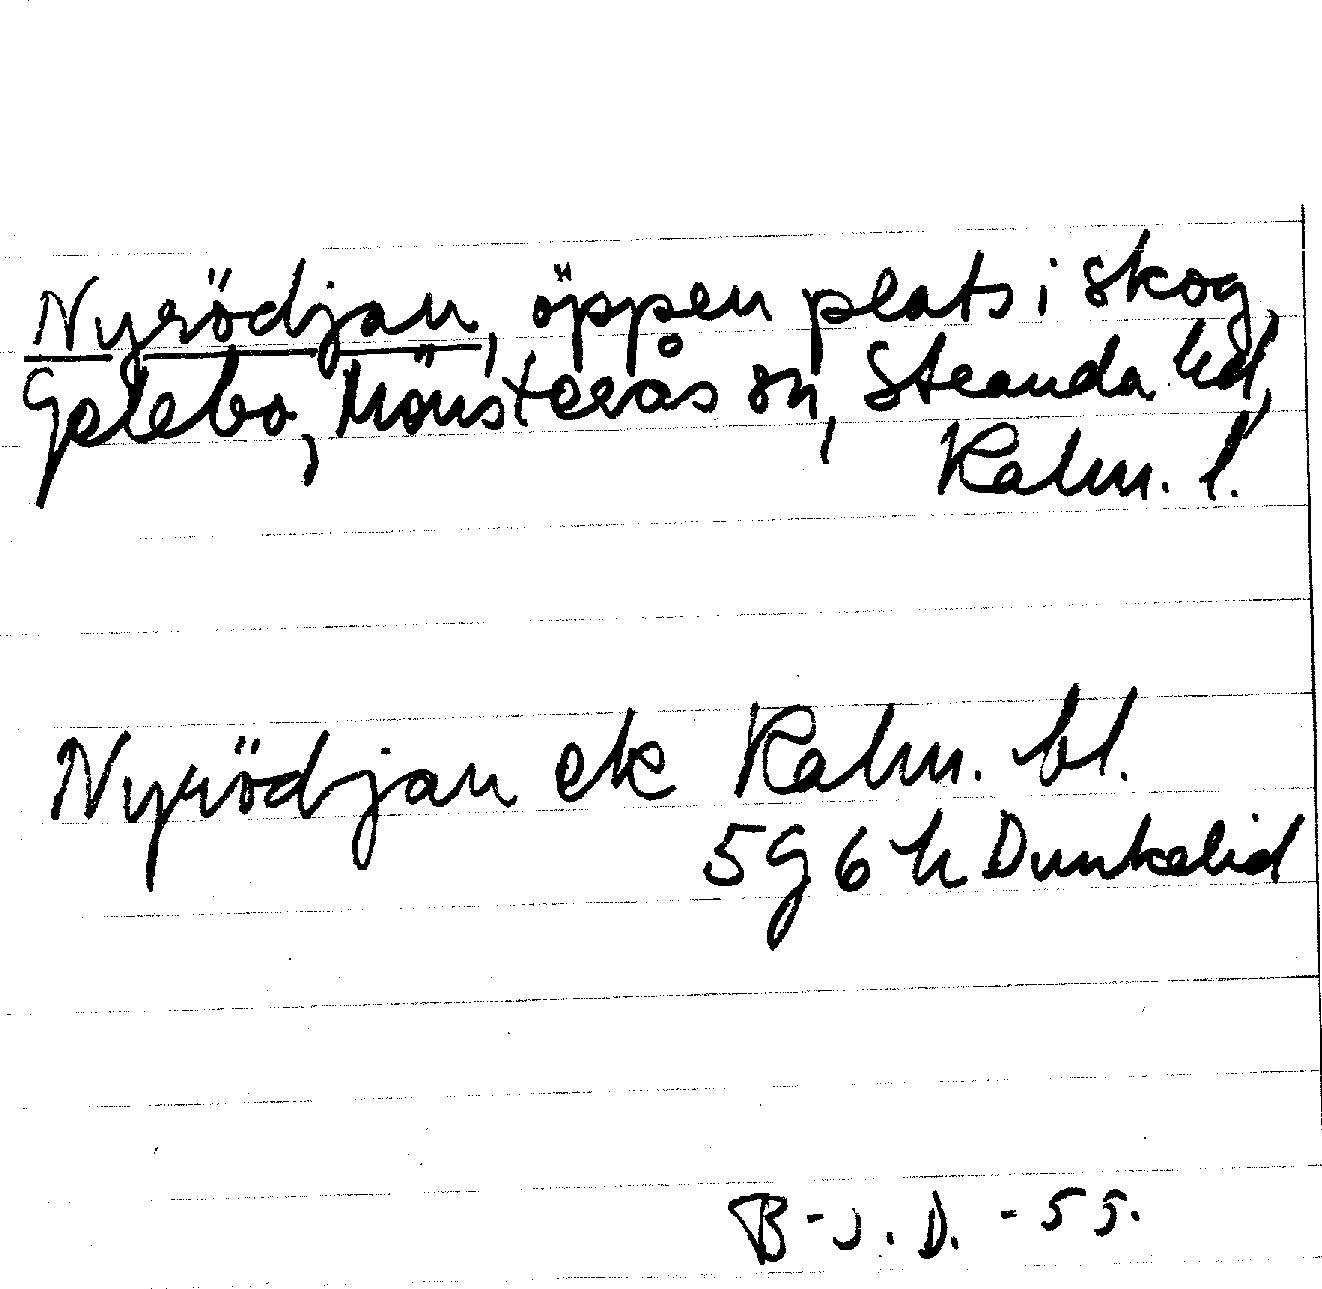 Nyrödjan, öppen plats i skog,
Gelebo, Mönsterås sn, Stranda hd,
Kalm. l.
Nyrödjan ek Kalm. bl.
5G6h Dunkelid
B-J. D. -55.